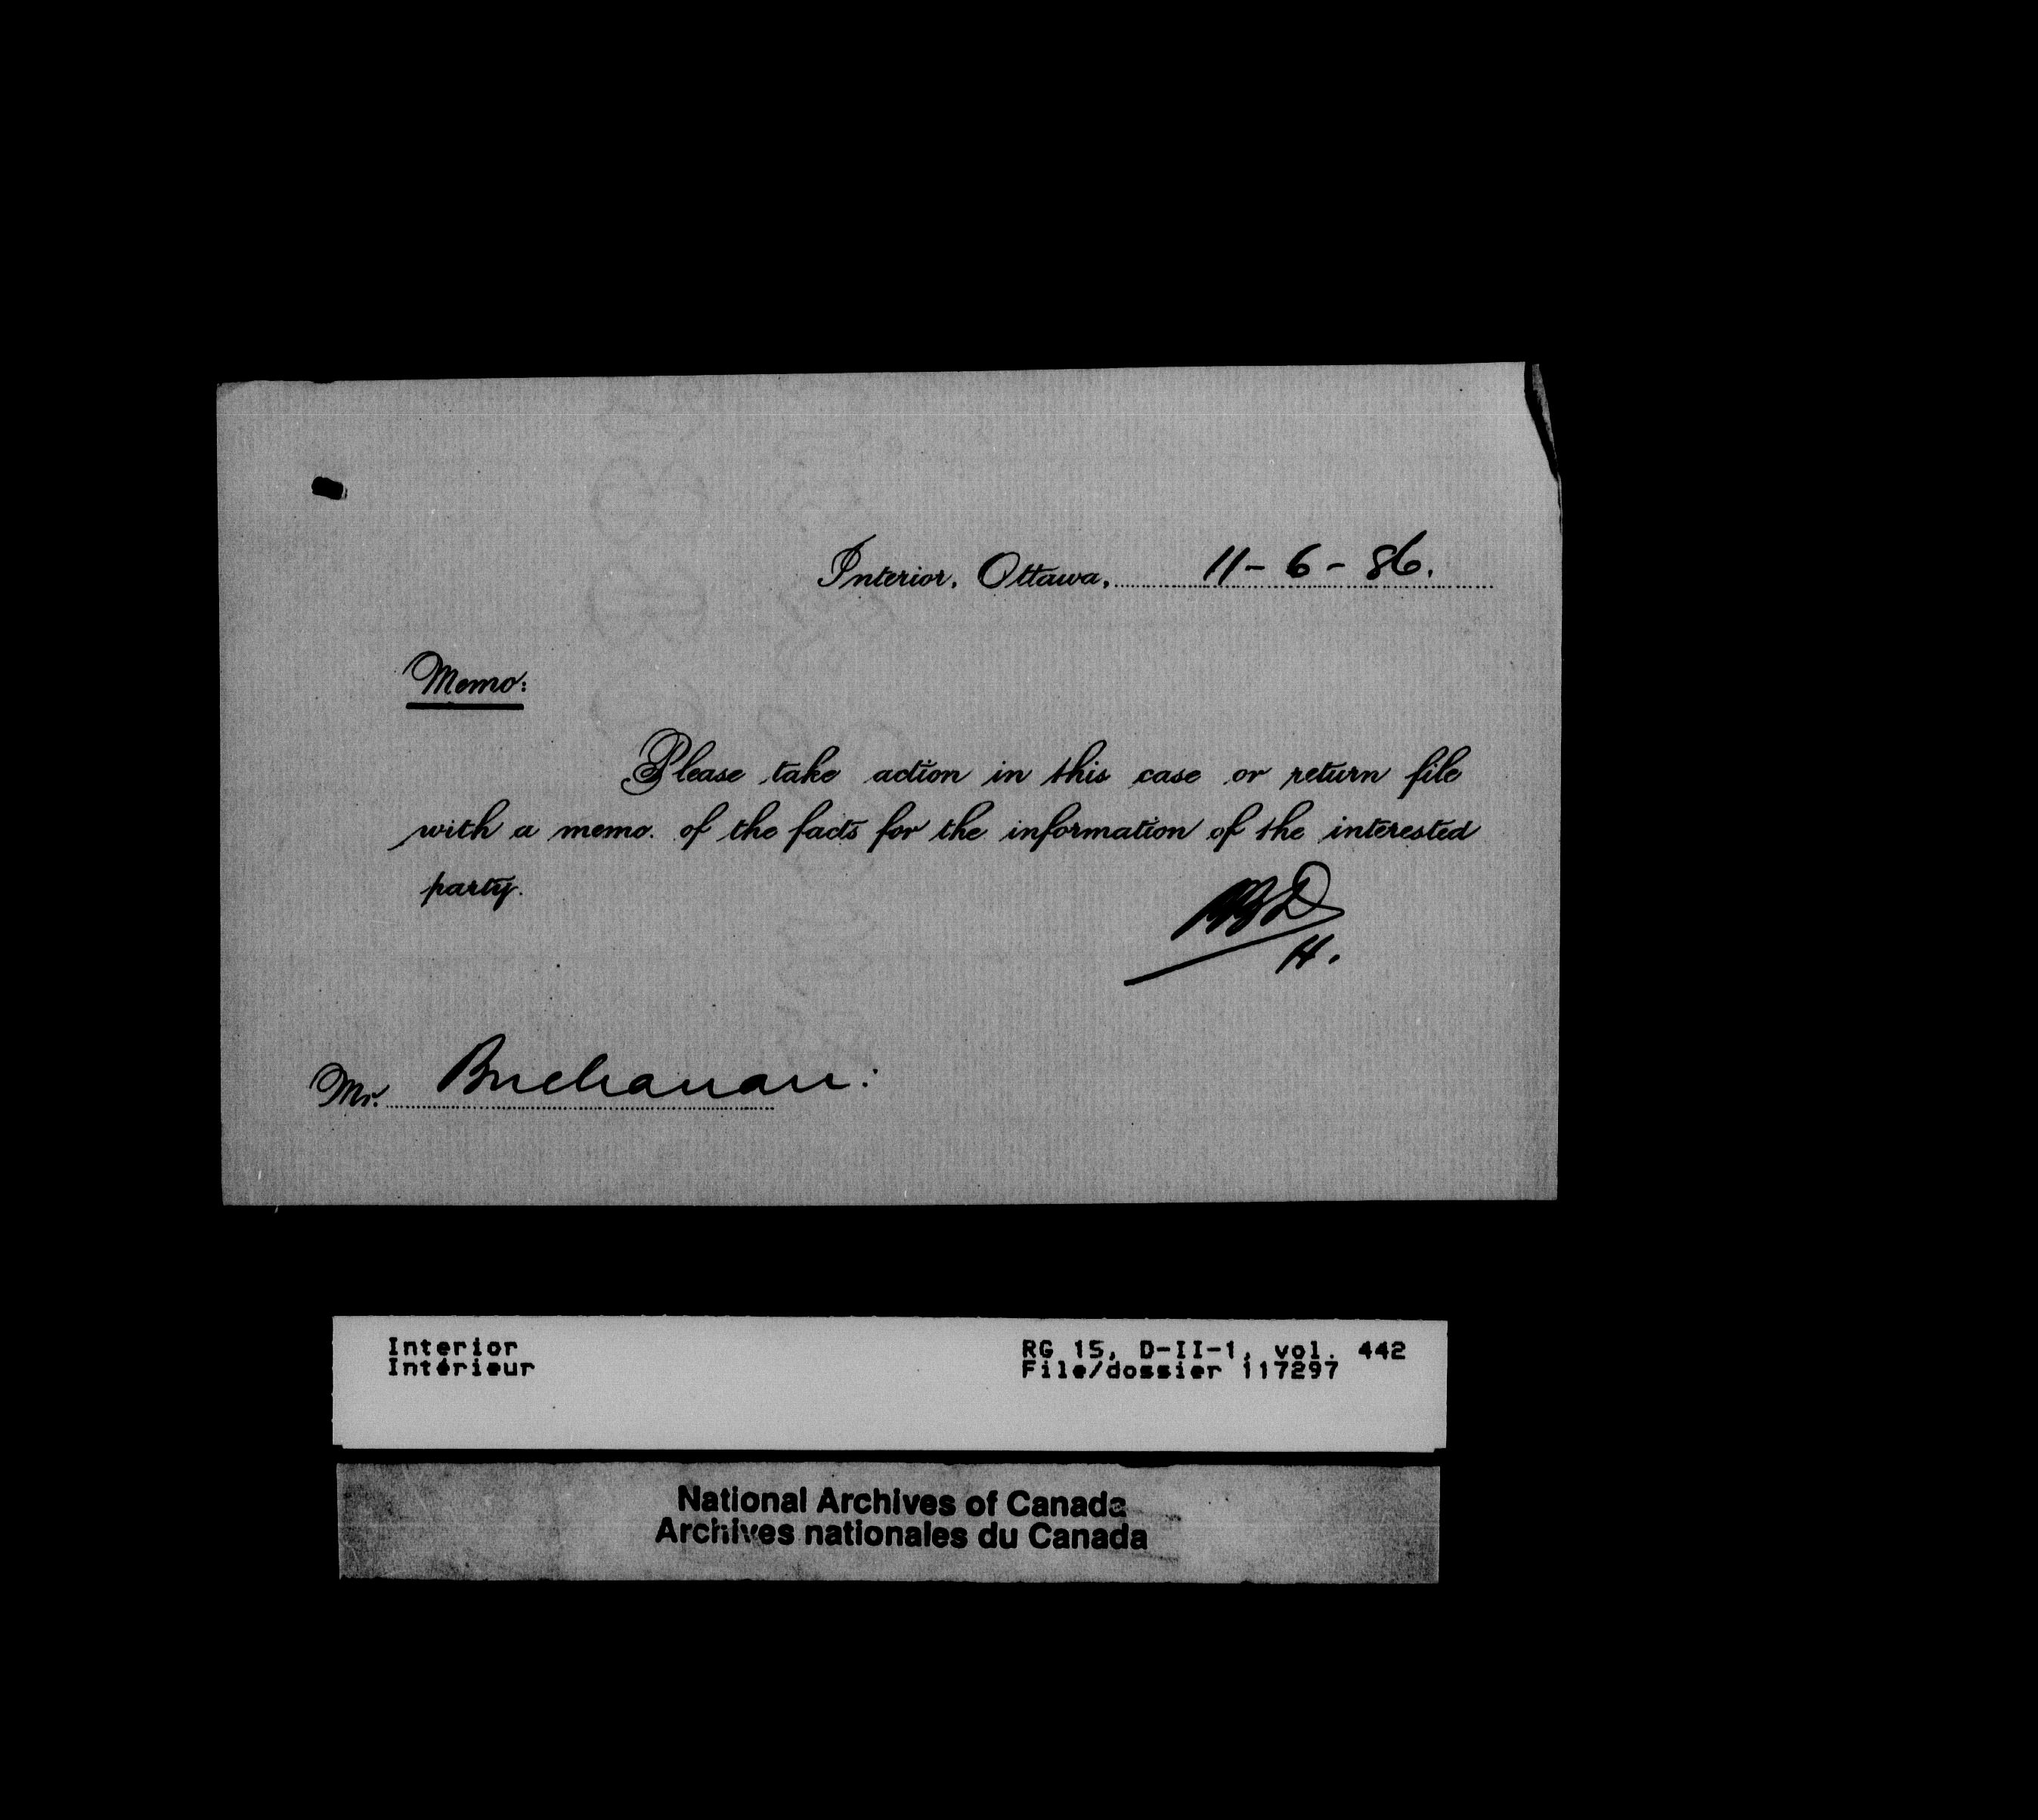 Interior, Ottawa, 11-6-86.
Memo:
Please take action in this case or return file
with a memo. of the facts for the information of the interested
party.
H.
Mr. Buchanan:
Interior
Intérieur
RG 15, D-II-1, vol. 442
File/dossier 117297
National Archives of Canada
Archives nationales du Canada